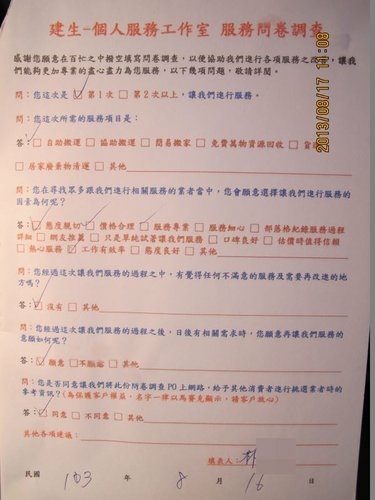 建生-個人服務工作室 服務問卷調查
2013/08/17 17:08
感謝您願意在百忙之中撥空填寫問卷調查，以便協助我們進行各項服務之改 ，讓我
們能夠更加專業的盡心盡力為您服務，以下幾項問題，敬請詳閱。
問：您這次是 ☑ 第1次 □ 第2次以上，讓我們進行服務。
問：您這次所需的服務項目是：
答：□ 自助搬運 □ 協助搬運 □ 簡易搬家 □ 免費萬物資源回收 □ 貨
□ 居家廢棄物清運 □ 其他
問：您在尋找眾多跟我們進行相關服務的業者當中，您會願意選擇讓我們進行服務的
因素為何呢？
答：☑ 態度親切 ☑ 價格合理 □ 服務專業 □ 服務細心 □ 部落格紀錄服務過程
詳細 □ 網友推薦 □ 只是單純試著讓我們服務 □ 口碑良好 □ 估價時值得信賴
□ 熱心服務 ☑ 工作有效率 □ 態度良好 □ 其他
問：您經過這次讓我們服務的過程之中，有覺得任何不滿意的服務及需要再改進的地
方嗎？
答：☑ 沒有 □ 其他
問：您經過這次讓我們服務的過程之後，日後有相關需求時，您願意再讓我們服務的
意願如何呢？
答：☑ 願意 □ 不願意 □ 其他
問：您是否同意讓我們將此份問卷調查PO上網路，給予其他消費者進行挑選業者時的
參考資訊？(為保護客戶權益，名字一律以馬賽克顯示，請客戶放心)
答：☑ 同意 □ 不同意 □ 其他
其他各項建議：
填表人：林
民國 103 年 8 月 16 日